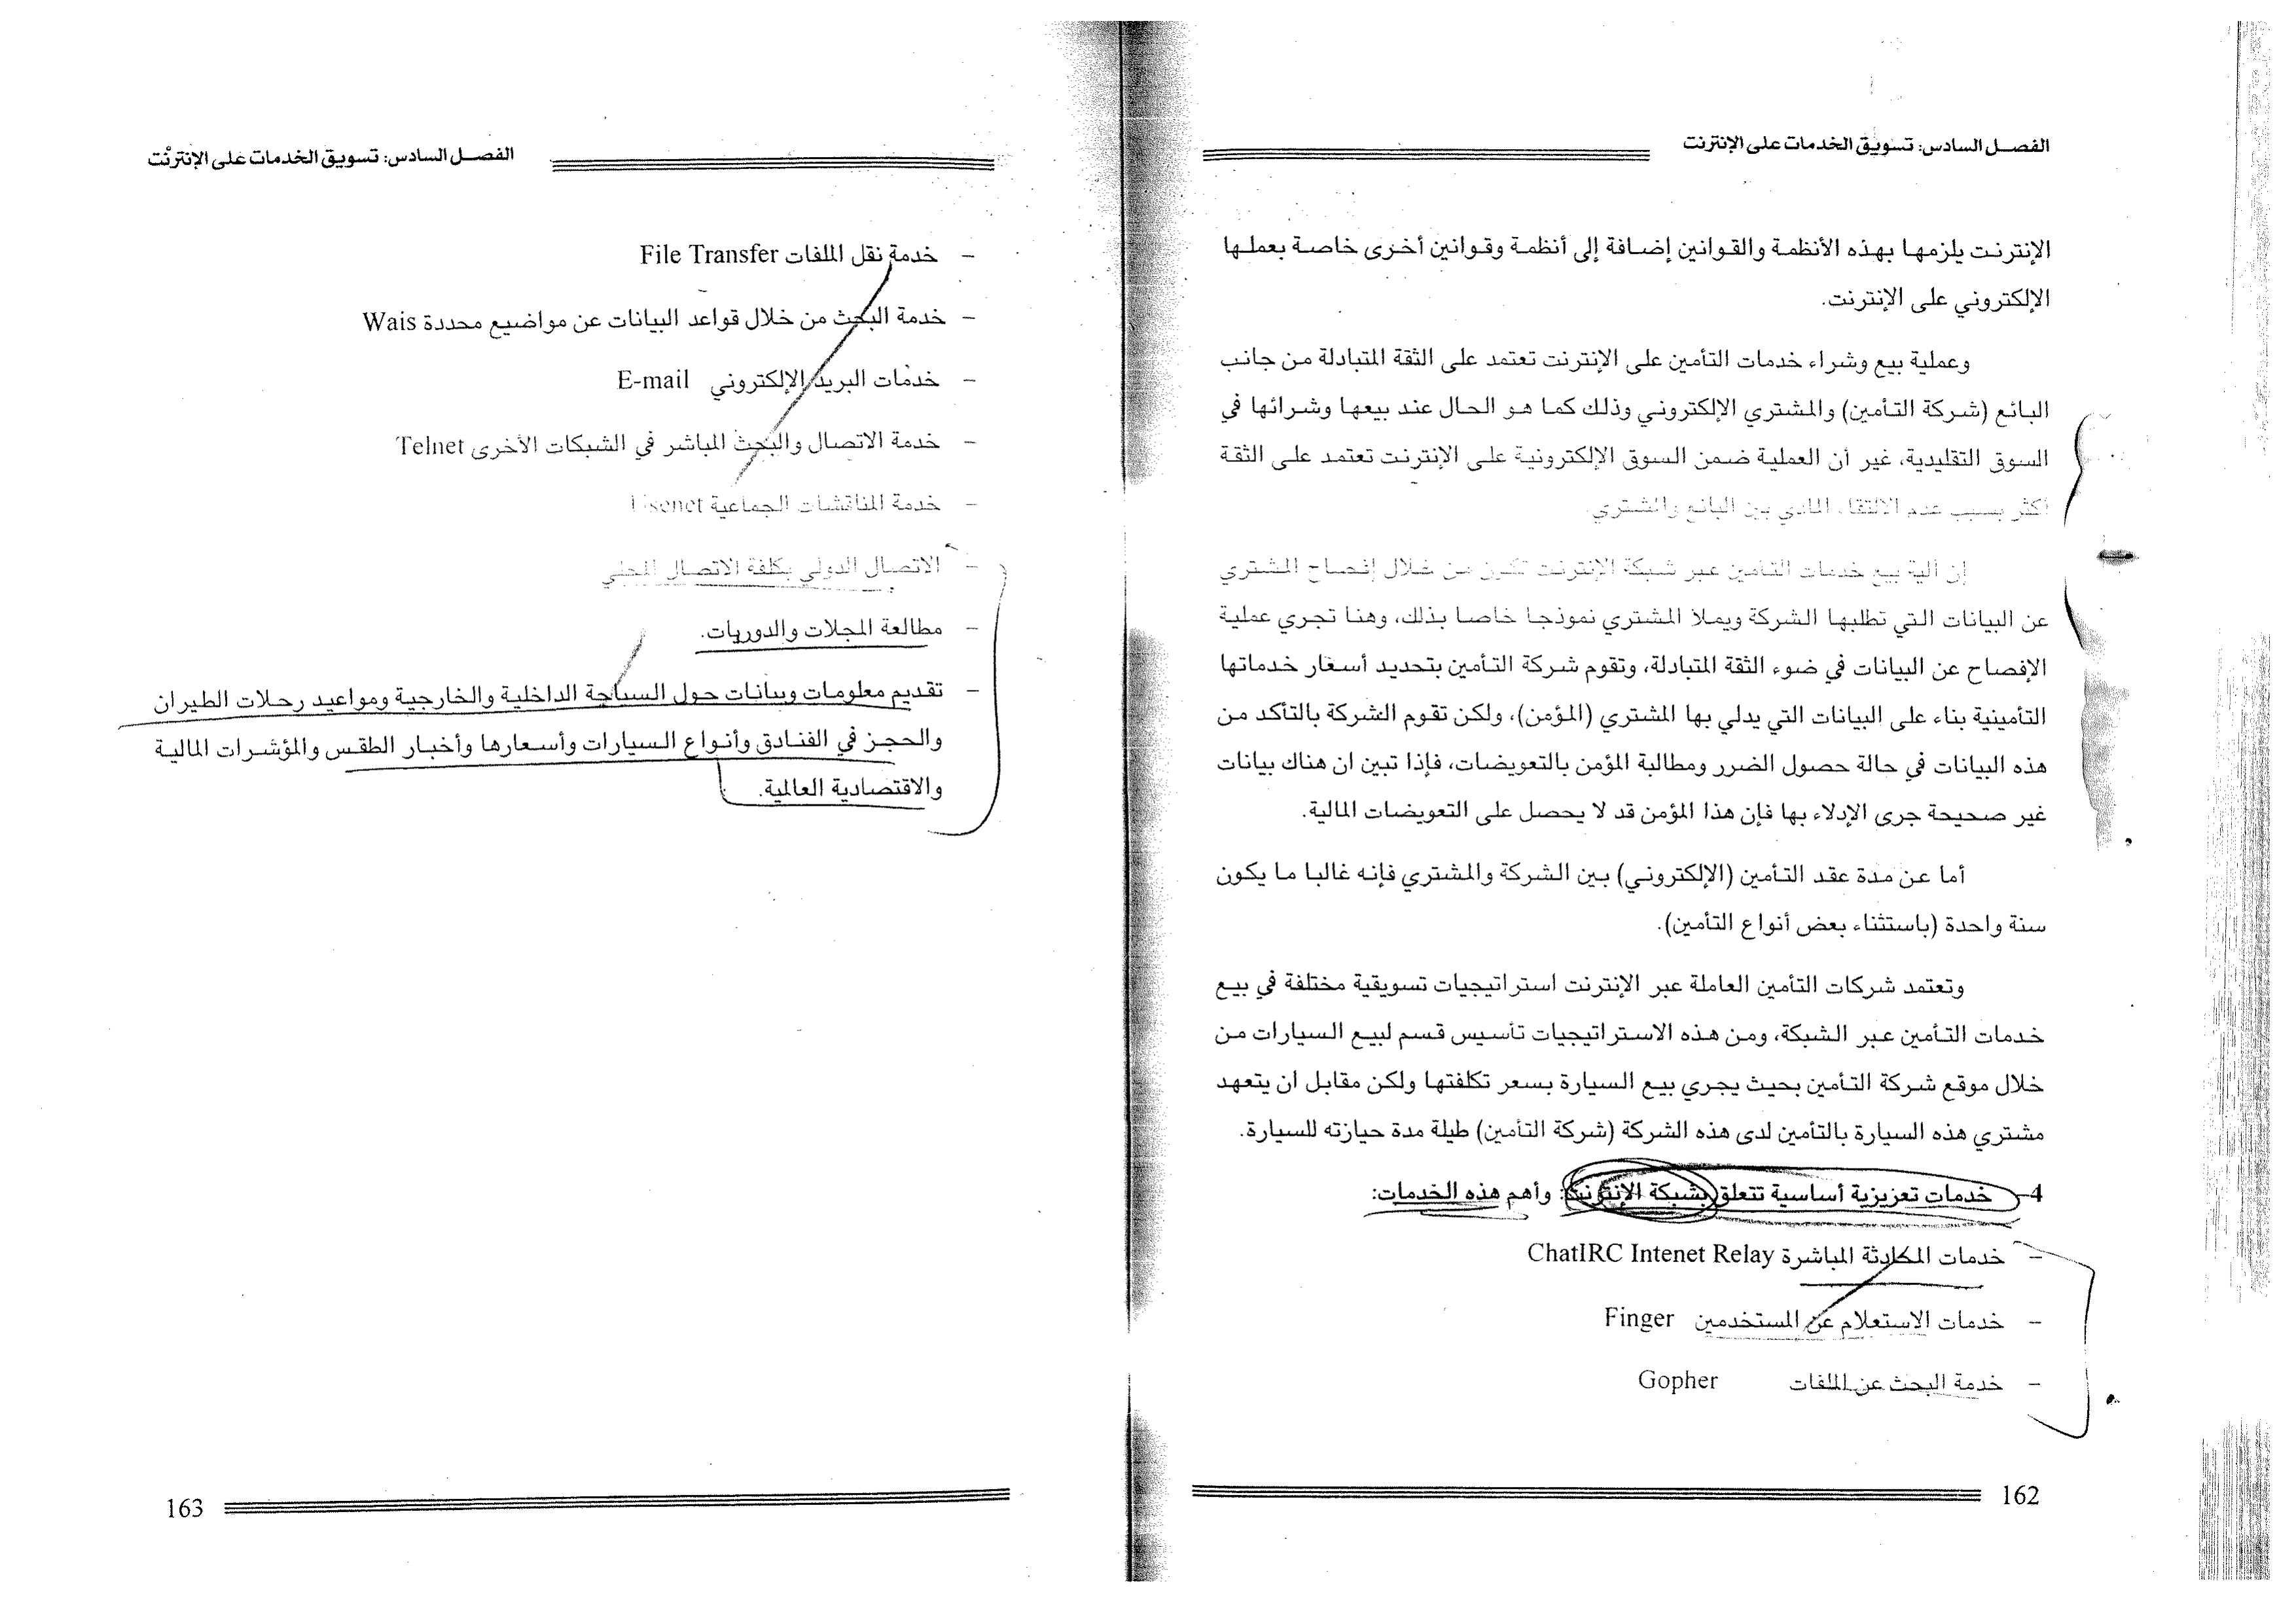 الفصل السادس: تسويق الخدمات على الإنترنت
الإنترنت يلزمها بهذه الأنظمة والقوانين إضافة إلى أنظمة وقوانين أخرى خاصة بعملها
الإلكتروني على الإنترنت.
وعملية بيع وشراء خدمات التأمين على الإنترنت تعتمد على الثقة المتبادلة من جانب
البائع (شركة التأمين) والمشتري الإلكتروني وذلك كما هو الحال عند بيعها وشرائها في
السوق التقليدية، غير أن العملية ضمن السوق الإلكترونية على الإنترنت تعتمد على الثقة
أكثر بسبب عدم الالتقاء المادي بين البائع والمشتري.
إن آلية بيع خدمات التأمين عبر شبكة الإنترنت تكون من خلال إفصاح المشتري
عن البيانات التي تطلبها الشركة ويملأ المشتري نموذجا خاصا بذلك، وهنا تجري عملية
الإفصاح عن البيانات في ضوء الثقة المتبادلة، وتقوم شركة التأمين بتحديد أسعار خدماتها
التأمينية بناء على البيانات التي يدلي بها المشتري (المؤمن)، ولكن تقوم الشركة بالتأكد من
هذه البيانات في حالة حصول الضرر ومطالبة المؤمن بالتعويضات، فإذا تبين ان هناك بيانات
غير صحيحة جرى الإدلاء بها فإن هذا المؤمن قد لا يحصل على التعويضات المالية.
أما عن مدة عقد التأمين (الإلكتروني) بين الشركة والمشتري فإنه غالبا ما يكون
سنة واحدة (باستثناء بعض أنواع التأمين).
وتعتمد شركات التأمين العاملة عبر الإنترنت استراتيجيات تسويقية مختلفة في بيع
خدمات التأمين عبر الشبكة، ومن هذه الاستراتيجيات تأسيس قسم لبيع السيارات من
خلال موقع شركة التأمين بحيث يجري بيع السيارة بسعر تكلفتها ولكن مقابل ان يتعهد
مشتري هذه السيارة بالتأمين لدى هذه الشركة (شركة التأمين) طيلة مدة حيازته للسيارة.
4- خدمات تعزيزية أساسية تتعلق بشبكة الإنترنت: وأهم هذه الخدمات:
- خدمات المحادثة المباشرة ChatIRC Intenet Relay
- خدمات الاستعلام عن المستخدمين Finger
- خدمة البحث عن الملفات Gopher
162
الفصل السادس: تسويق الخدمات على الإنترنت
- خدمة نقل الملفات File Transfer
- خدمة البحث من خلال قواعد البيانات عن مواضيع محددة Wais
- خدمات البريد الإلكتروني E-mail
- خدمة الاتصال والبحث المباشر في الشبكات الأخرى Telnet
- خدمة المناقشات الجماعية Usenet
- الاتصال الدولي بكلفة الاتصال المحلي
- مطالعة المجلات والدوريات.
- تقديم معلومات وبيانات حول السياحة الداخلية والخارجية ومواعيد رحلات الطيران
والحجز في الفنادق وأنواع السيارات وأسعارها وأخبار الطقس والمؤشرات المالية
والاقتصادية العالمية.
163